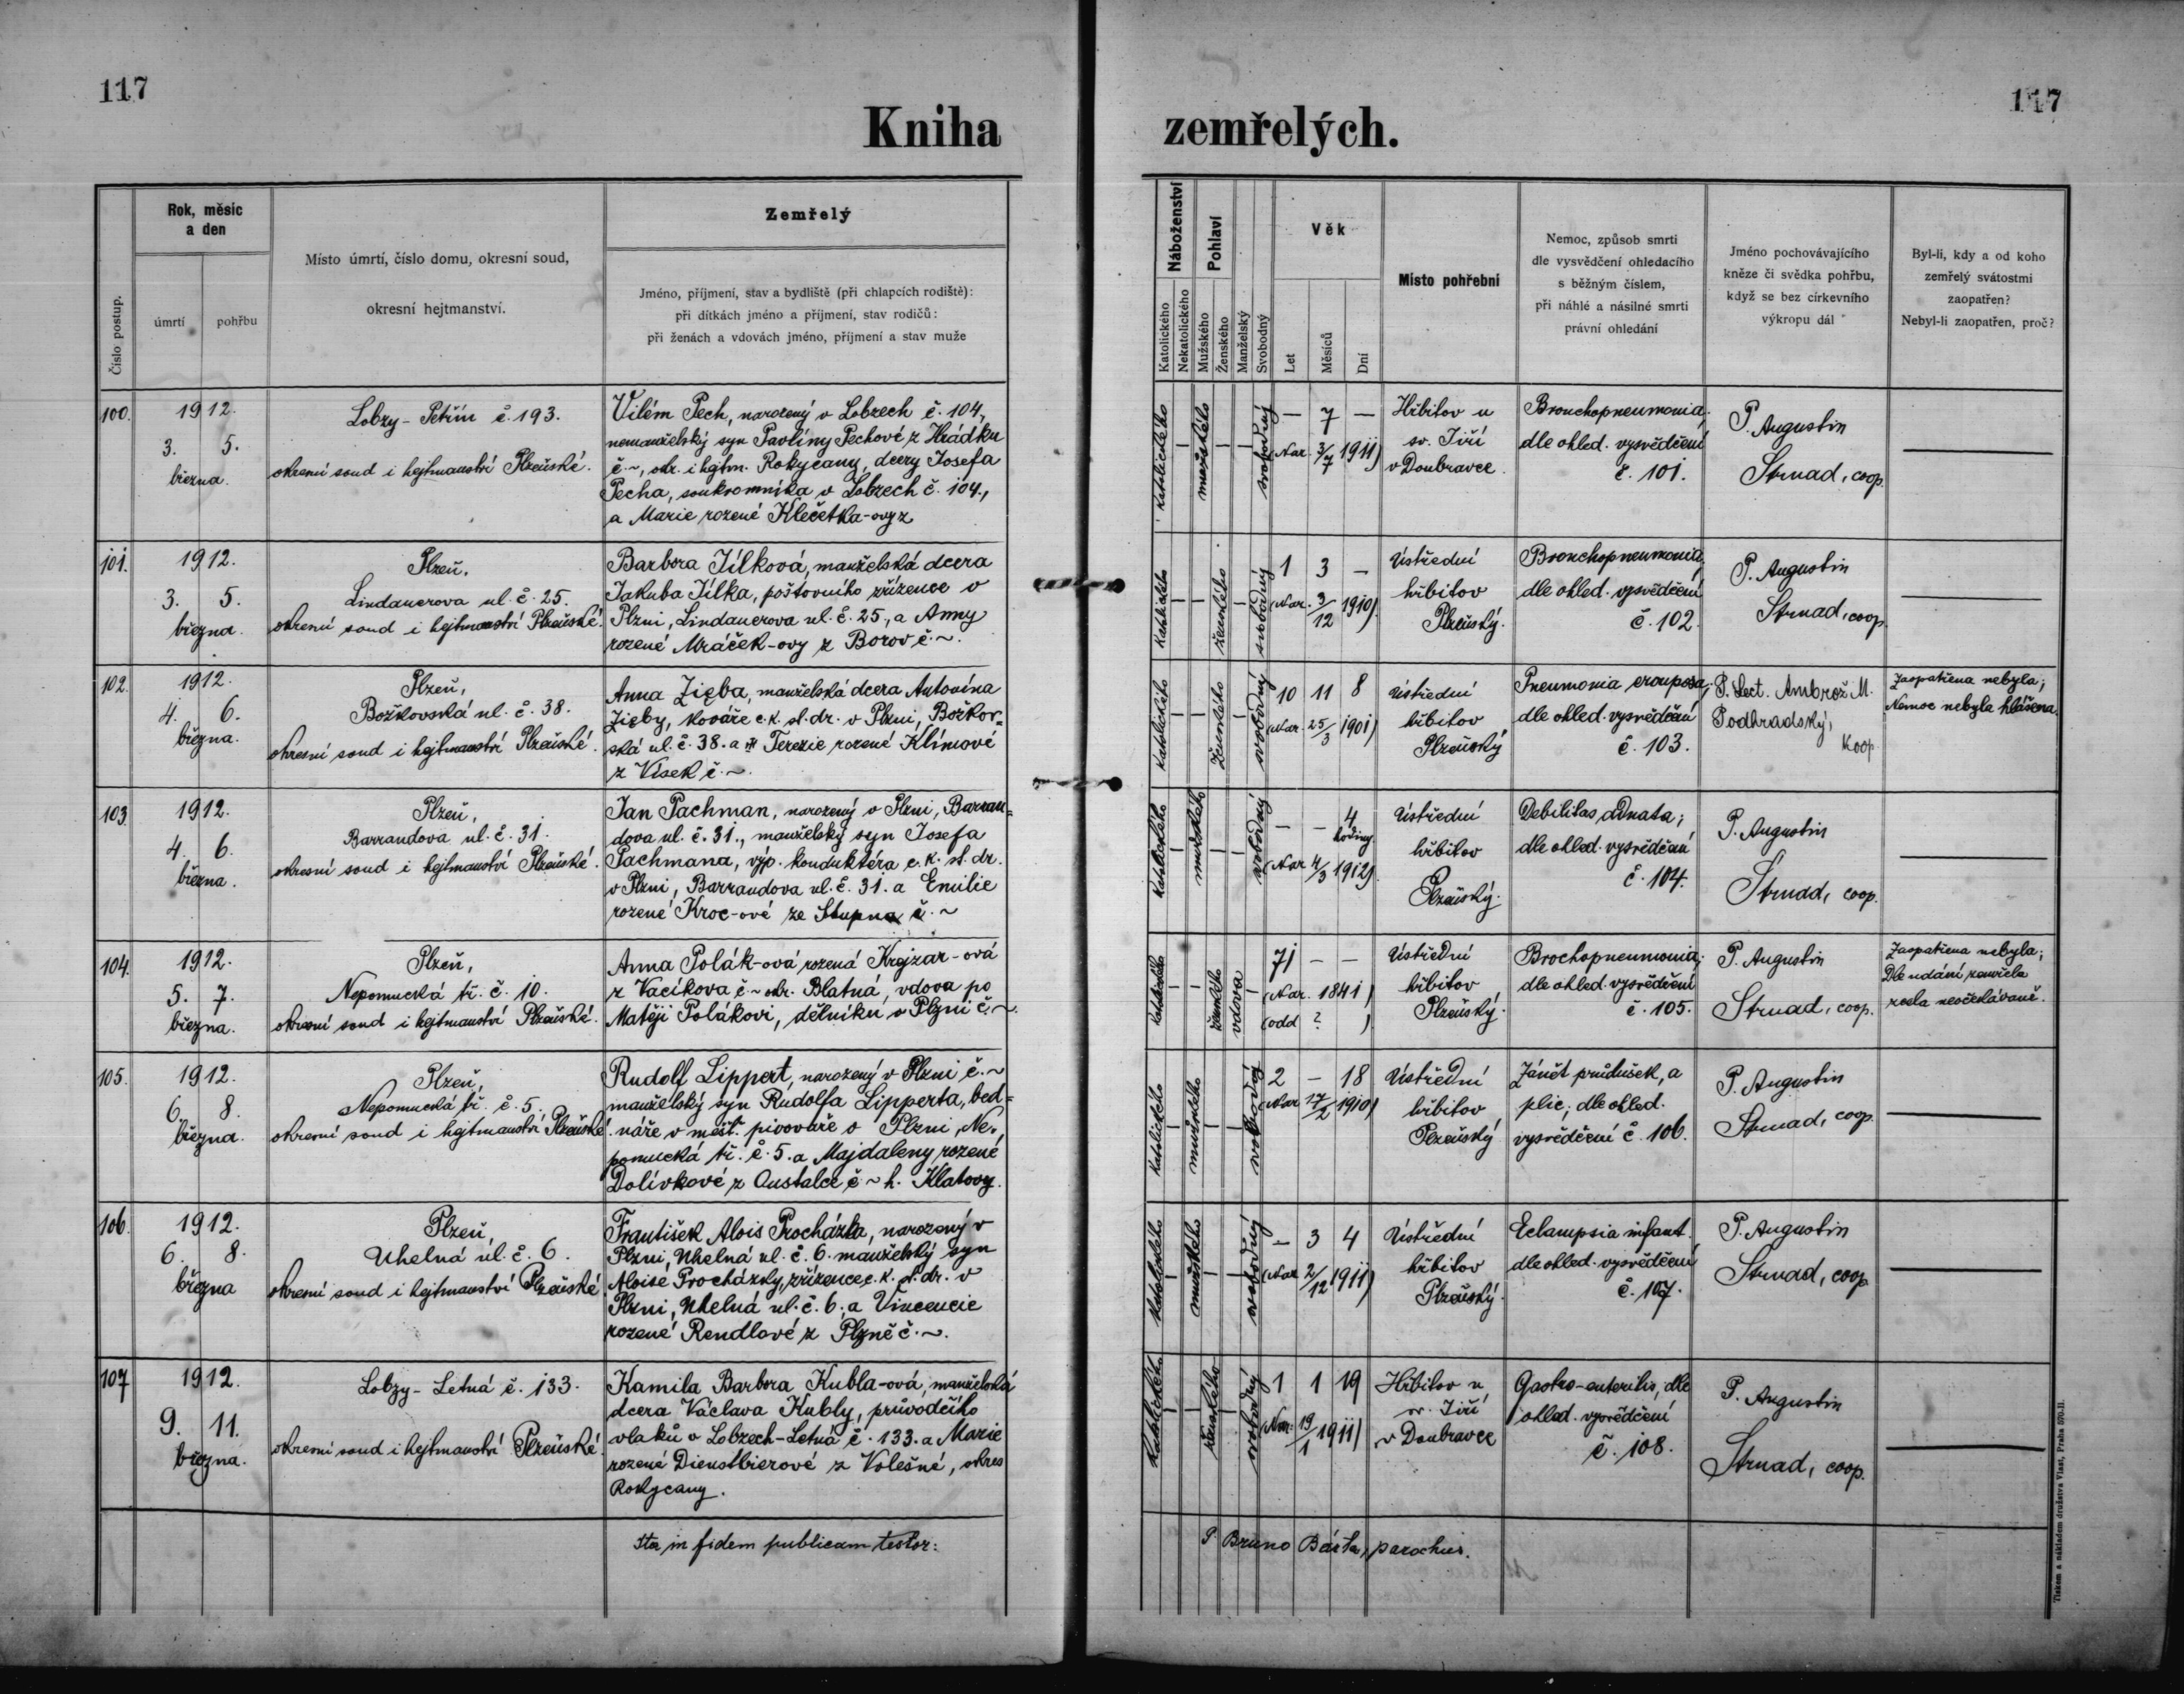 117
117
Kniha zemřelých.
Číslo postup.
Rok, měsíc
a den
úmrtí
pohřbu
Místo úmrtí, číslo domu, okresní soud,
okresní hejtmanství.
Zemřelý
Jméno, příjmení, stav a bydliště (při chlapcích rodiště):
při dítkách jméno a příjmení, stav rodičů:
při ženách a vdovách jméno, příjmení a stav muže
Náboženství
Katolického
Nekatolického
Pohlaví
Mužského
Ženského
Manželský
Svobodný
Věk
Let
Měsíců
Dní
Místo pohřební
Nemoc, způsob smrti
dle vysvědčení ohledacího
s běžným číslem,
při náhlé a násilné smrti
právní ohledání
Jméno pochovávajícího
kněze či svědka pohřbu,
když se bez církevního
výkropu dál
Byl-li, kdy a od koho
zemřelý svátostmi
zaopatřen?
Nebyl-li zaopatřen, proč?
100.
1912.
3. 5.
března.
Lobzy - Petřín č. 193.
okresní soud i hejtmanství Plzeňské.
Vilém Pech, narozený v Lobzech č. 104,
nemanželský syn Pavlíny Pechové z Hrádku
č. ~, okr. i hejtm. Rokycany, dcery Josefa
Pecha, soukromníka v Lobzech č. 104.,
a Marie rozené Klečetka-ovy z
katolického
mužského
svobodný
— 7 —
(Nar. 3/7 1911)
Hřbitov u
sv. Jiří
v Doubravce.
Bronchopneumonia;
dle ohled. vysvědčení
č. 101.
P. Augustin
Strnad, coop.
101.
1912.
3. 5.
března.
Plzeň,
Lindauerova ul. č. 25.
okresní soud i hejtmanství Plzeňské.
Barbora Jílková, manželská dcera
Jakuba Jílka, poštovního zřízence v
Plzni, Lindauerova ul. č. 25., a Anny
rozené Mráček-ovy z Borov č. ~.
katolického
ženského
svobodný
1 3 —
(Nar. 3/12 1910).
Ústřední
hřbitov
Plzeňský.
Bronchopneumonia;
dle ohled. vysvědčení
č. 102.
P. Augustin
Strnad, coop.
102.
1912.
4. 6.
března.
Plzeň,
Božkovská ul. č. 38.
okresní soud i hejtmanství Plzeňské.
Anna Zięba, manželská dcera Antonína
Zięby, kováře c. k. st. dr. v Plzni, Božkov=
ská ul. č. 38. a Terezie rozené Klímové
z Vísek č. ~.
katolického
ženského
svobodný
10 11 8
(Nar. 25/3 1901)
Ústřední
hřbitov
Plzeňský
Pneumonia crouposa;
dle ohled. vysvědčení
č. 103.
P. Lect. Ambrož M.
Podhradský,
koop.
Zaopatřena nebyla;
Nemoc nebyla hlášena.
103.
1912.
4. 6.
března.
Plzeň,
Barrandova ul. č. 31.
okresní soud i hejtmanství Plzeňské.
Jan Pachman, narozený v Plzni, Barran=
dova ul. č. 31., manželský syn Josefa
Pachmana, výp. konduktéra c. k. st. dr.
v Plzni, Barrandova ul. č. 31. a Emilie
rozené Kroc-ové ze Stupna č. ~
katolického
mužského
svobodný
— — 4
hodiny
(Nar. 4/3 1912).
Ústřední
hřbitov
Plzeňský.
Debilitas adnata;
dle ohled. vysvědčení
č. 104.
P. Augustin
Strnad, coop.
104.
1912.
5. 7.
března.
Plzeň,
Nepomucká tř. č. 10.
okresní soud i hejtmanství Plzeňské.
Anna Polák-ová rozená Krejzar-ová
z Vacíkova č ~ okr. Blatná, vdova po
Matěji Polákovi, dělníku v Plzni č. ~.
katolického
ženského
vdova
71 — —
(Nar. 1841 )
(odd ? )
Ústřední
hřbitov
Plzeňský.
Brochopneumonia;
dle ohled. vysvědčení
č. 105.
P. Augustin
Strnad, coop.
Zaopatřena nebyla;
Dle udání zemřela
zcela neočekávaně.
105.
1912.
6. 8.
března.
Plzeň,
Nepomucká tř. č. 5.
okresní soud i hejtmanství Plzeňské.
Rudolf Lippert, narozený v Plzni č. ~
manželský syn Rudolfa Lipperta, bed=
náře v měšť. pivováře v Plzni, Ne=
pomucká tř. č. 5. a Majdaleny rozené
Dolívkové z Oustalce č ~ h. Klatovy.
katolického
mužského
svobodný
2 — 18
(Nar. 17/2 1910)
Ústřední
hřbitov
Plzeňský
Zánět průdušek, a
plic; dle ohled.
vysvědčení č. 106.
P. Augustin
Strnad, coop.
106.
1912.
6. 8.
března
Plzeň,
Uhelná ul. č. 6.
okresní soud i hejtmanství Plzeňské.
František Alois Procházka, narozený v
Plzni, Uhelná ul. č. 6. manželský syn
Aloise Procházky, zřízence c. k. st. dr. v
Plzni, Uhelná ul. č. 6. a Vincencie
rozené Rendlové z Plzně č. ~.
katolického
mužského
svobodný
— 3 4
(Nar. 2/12 1911)
Ústřední
hřbitov
Plzeňský.
Eclampsia infant.
dle ohled. vysvědčení
č. 107.
P. Augustin
Strnad, coop.
107
1912.
9. 11.
března.
Lobzy - Letná č. 133.
okresní soud i hejtmanství Plzeňské
Kamila Barbora Kubla-ová, manželská
dcera Václava Kubly, průvodčího
vlaků v Lobzech-Letná č. 133. a Marie
rozené Dienstbierové z Volešné, okres
Rokycany.
katolického
ženského
svobodný
1 1 19
(Nar. 19/1 1911)
Hřbitov u
sv. Jiří
v Doubravce
Gastro-enteritis, dle
ohled. vysvědčení
č. 108.
P. Augustin
Strnad, coop.
Ita in fidem publicam testor:
P. Bruno Bárta, parochus.
Tiskem a nákladem družstva Vlast, Praha 570-II.